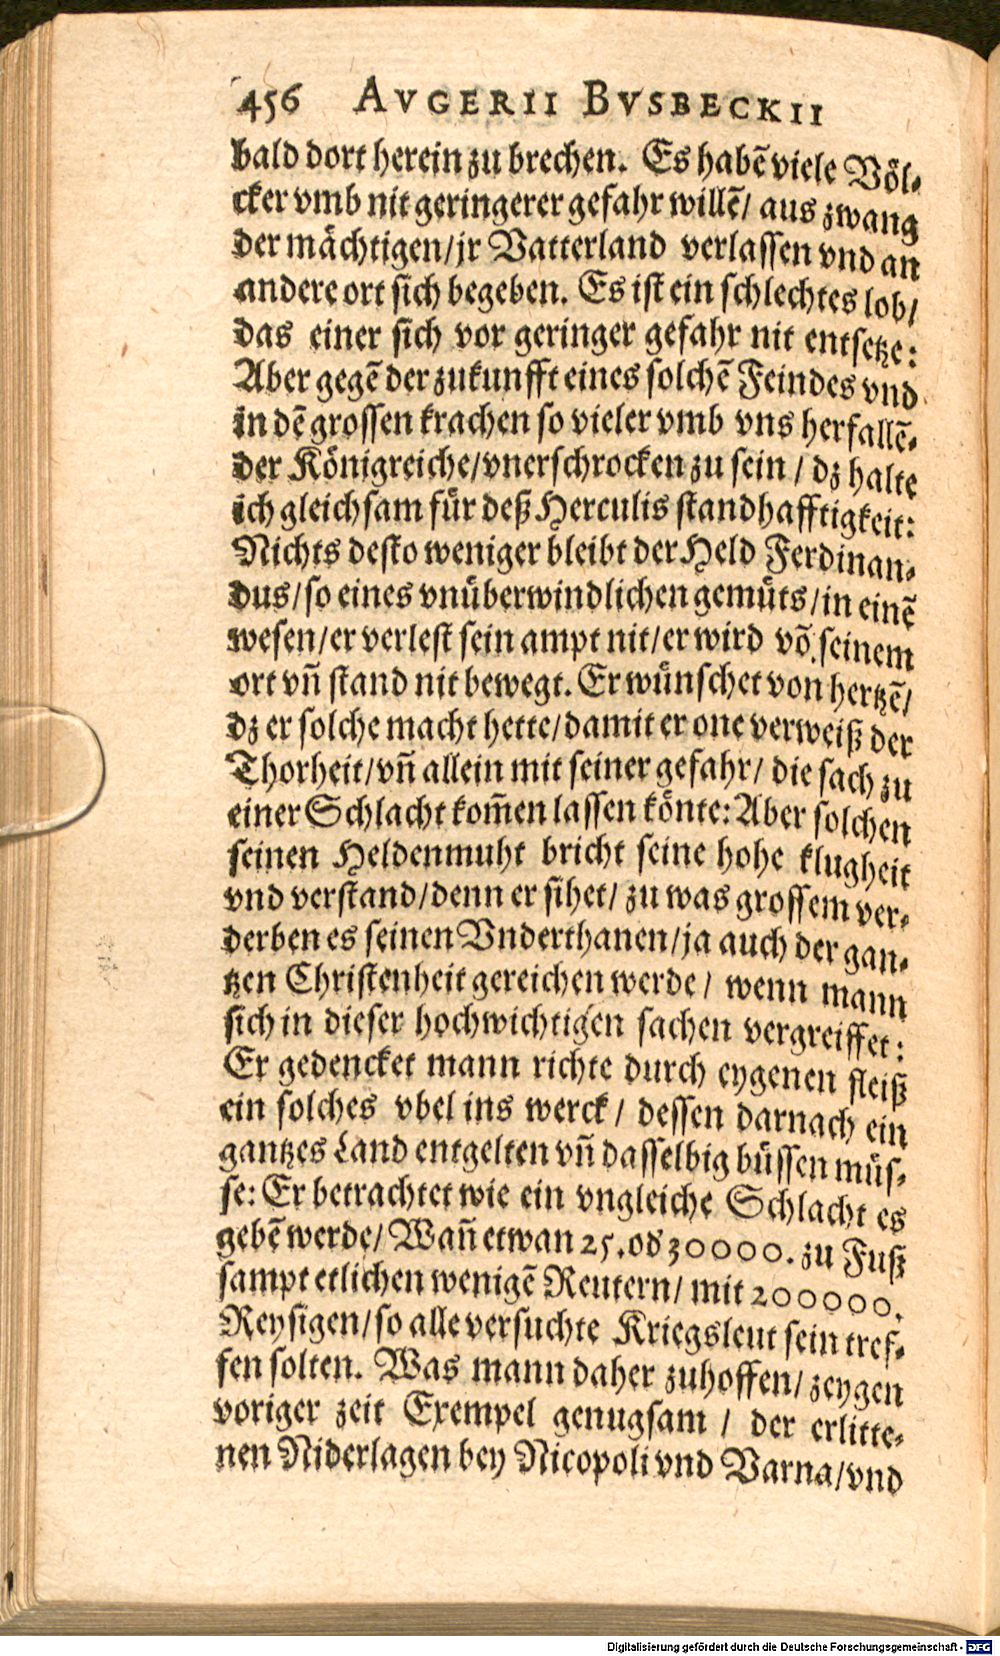 456 AVGERII BVSBECKII
bald dort herein zu brechen. Es habẽ viele Völ-
cker vmb nit geringerer gefahr willẽ/ aus zwang
der mächtigen/jr Vatterland verlassen vnd an
andere ort sich begeben. Es ist ein schlechtes lob/
das einer sich vor geringer gefahr nit entsetze:
Aber gegẽ der zukunfft eines solchẽ Feindes vnd
in dẽ grossen krachen so vieler vmb vns herfallẽ-
der Königreiche/vnerschrocken zu sein / dz halte
ich gleichsam für deß Herculis standhafftigkeit:
Nichts desto weniger bleibt der Held Ferdinan-
dus/so eines vnüberwindlichen gemüts/in einẽ
wesen/er verlest sein ampt nit/er wird võ seinem
ort vñ stand nit bewegt. Er wünschet von hertzẽ/
dz er solche macht hette/damit er one verweiß der
Thorheit/vñ allein mit seiner gefahr/ die sach zu
einer Schlacht kom̃en lassen könte: Aber solchen
seinen Heldenmuht bricht seine hohe klugheit
vnd verstand/denn er sihet/ zu was grossem ver-
derben es seinen Vnderthanen/ja auch der gan-
tzen Christenheit gereichen werde / wenn mann
sich in dieser hochwichtigen sachen vergreiffet:
Er gedencket mann richte durch eygenen fleiß
ein solches vbel ins werck / dessen darnach ein
gantzes Land entgelten vñ dasselbig büssen müs-
se: Er betrachtet wie ein vngleiche Schlacht es
gebẽ werde/ Wañ etwan 25. od 30000. zu Fuß
sampt etlichen wenigẽ Reutern/ mit 200000.
Reysigen/so alle versuchte Kriegsleut sein tref-
fen solten. Was mann daher zuhoffen/ zeygen
voriger zeit Exempel genugsam / der erlitte-
nen Niderlagen bey Nicopoli vnd Varna/vnd
Digitalisierung gefördert durch die Deutsche Forschungsgemeinschaft - DFG